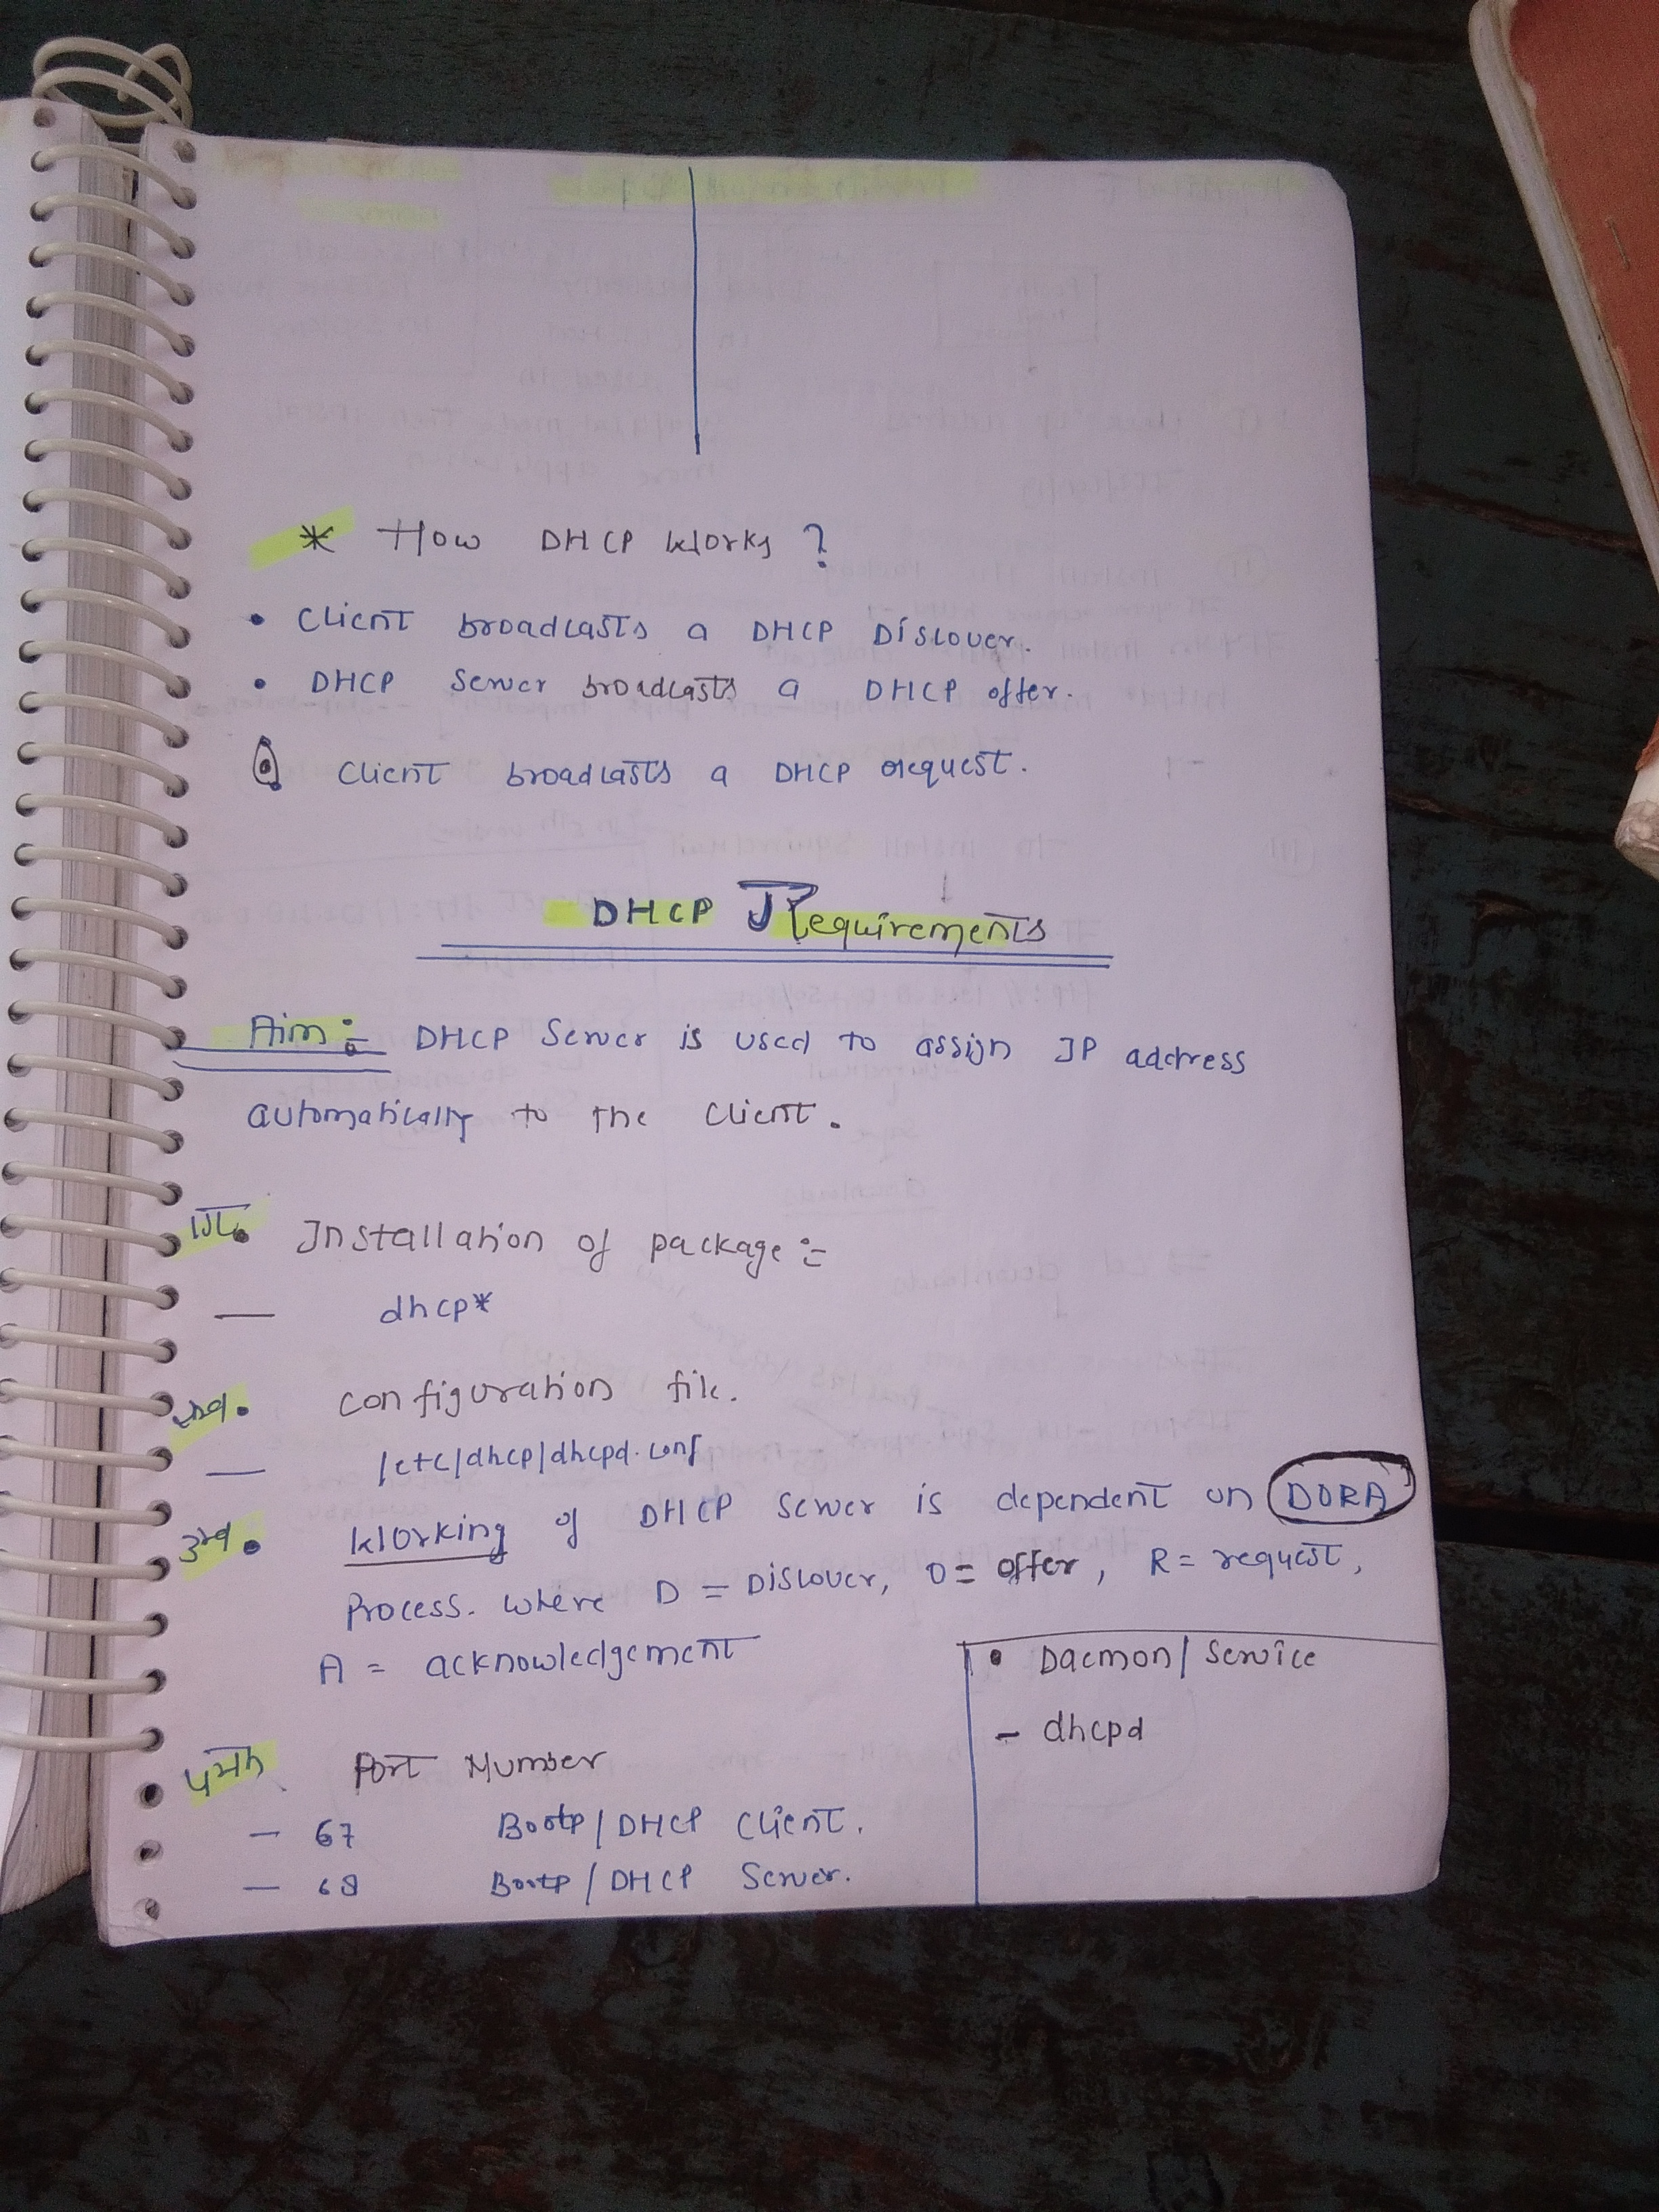 * How DHCP Works ?
• Client broadcasts a DHCP Discover.
• DHCP Server broadcasts a DHCP offer.
Client broadcasts a DHCP request.
DHCP Requirements
Aim:- DHCP Server is used to assign IP address
automatically to the client.
1st. Installation of package :-
— dhcp*
2nd. configuration file.
— /etc/dhcp/dhcpd.conf
3rd. Working of DHCP server is dependent on DORA
Process. where D = Discover, O = offer, R = request,
A = acknowledgement
• Daemon/Service
- dhcpd
4th Port Number
— 67 Bootp/DHCP Client.
— 68 Bootp/DHCP Server.